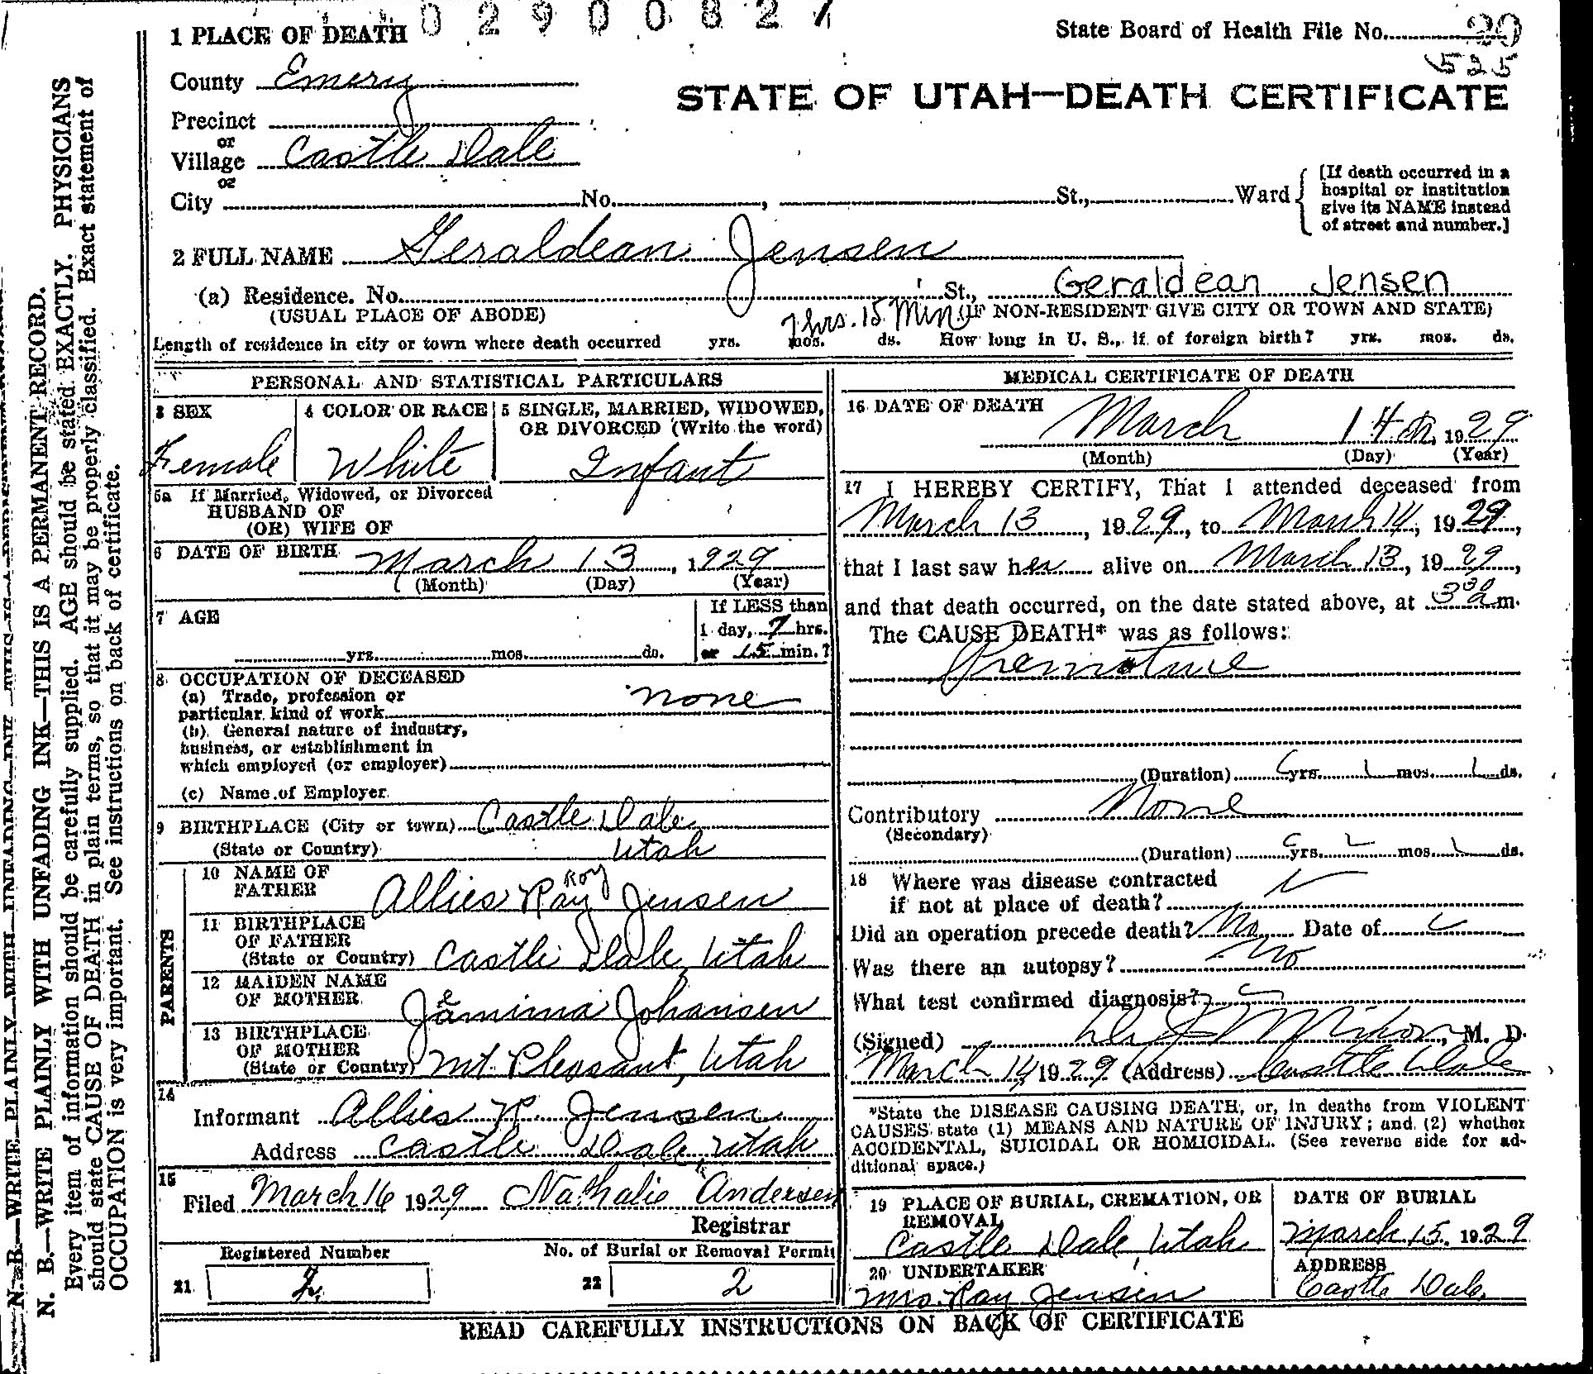 02900827
1 PLACE OF DEATH
State Board of Health File No. 20
525
County Emery
STATE OF UTAH—DEATH CERTIFICATE
Precinct
or
Village Castle Dale
or
City No. , St., Ward
[If death occurred in a hospital or institution give its NAME instead of street and number.]
2 FULL NAME Geraldean Jensen
(a) Residence. No. St., Geraldean Jensen
(USUAL PLACE OF ABODE) 7 hrs. 15 Min (IF NON-RESIDENT GIVE CITY OR TOWN AND STATE)
Length of residence in city or town where death occurred yrs. mos. ds. How long in U. S., if of foreign birth? yrs. mos. ds.
PERSONAL AND STATISTICAL PARTICULARS
3 SEX 4 COLOR OR RACE 5 SINGLE, MARRIED, WIDOWED,
OR DIVORCED (Write the word)
Female White Infant
5a If Married, Widowed, or Divorced
HUSBAND OF
(OR) WIFE OF
6 DATE OF BIRTH March 13, 1929
(Month) (Day) (Year)
7 AGE
If LESS than
1 day, 7 hrs.
yrs. mos. ds. or 15 min.?
8 OCCUPATION OF DECEASED
(a) Trade, profession or
particular kind of work none
(b) General nature of industry,
business, or establishment in
which employed (or employer)
(c) Name of Employer
9 BIRTHPLACE (City or town) Castle Dale
(State or Country) Utah
PARENTS
10 NAME OF
FATHER Allies Ray Roy Jensen
11 BIRTHPLACE
OF FATHER
(State or Country) Castle Dale, Utah
12 MAIDEN NAME
OF MOTHER Jamima Johansen
13 BIRTHPLACE
OF MOTHER
(State or Country) Mt Pleasant, Utah
14
Informant Allies R. Jensen
Address Castle Dale, Utah
15
Filed March 16 1929 Nathalie Andersen
Registrar
Registered Number No. of Burial or Removal Permit
21 2 22 2
MEDICAL CERTIFICATE OF DEATH
16 DATE OF DEATH
March 14th, 1929
(Month) (Day) (Year)
17 I HEREBY CERTIFY, That I attended deceased from
March 13, 1929, to March 14, 1929,
that I last saw her alive on March 13, 1929,
and that death occurred, on the date stated above, at 3 30 a m.
The CAUSE DEATH* was as follows:
Premature
(Duration) yrs. mos. ds.
Contributory None
(Secondary)
(Duration) yrs. mos. ds.
18 Where was disease contracted
if not at place of death?
Did an operation precede death? No Date of
Was there an autopsy? No
What test confirmed diagnosis?
(Signed) Nixon, M. D.
March 14, 1929 (Address) Castle Dale
*State the DISEASE CAUSING DEATH, or, in deaths from VIOLENT
CAUSES state (1) MEANS AND NATURE OF INJURY; and (2) whether
ACCIDENTAL, SUICIDAL OR HOMICIDAL. (See reverse side for ad-
ditional space.)
19 PLACE OF BURIAL, CREMATION, OR
REMOVAL
Castle Dale, Utah
DATE OF BURIAL
March 15, 1929
20 UNDERTAKER
Mrs. Ray Jensen
ADDRESS
Castle Dale.
READ CAREFULLY INSTRUCTIONS ON BACK OF CERTIFICATE
N. B.—WRITE PLAINLY WITH UNFADING INK—THIS IS A PERMANENT RECORD.
Every item of information should be carefully supplied. AGE should be stated EXACTLY. PHYSICIANS
should state CAUSE OF DEATH in plain terms, so that it may be properly classified. Exact statement of
OCCUPATION is very important. See instructions on back of certificate.